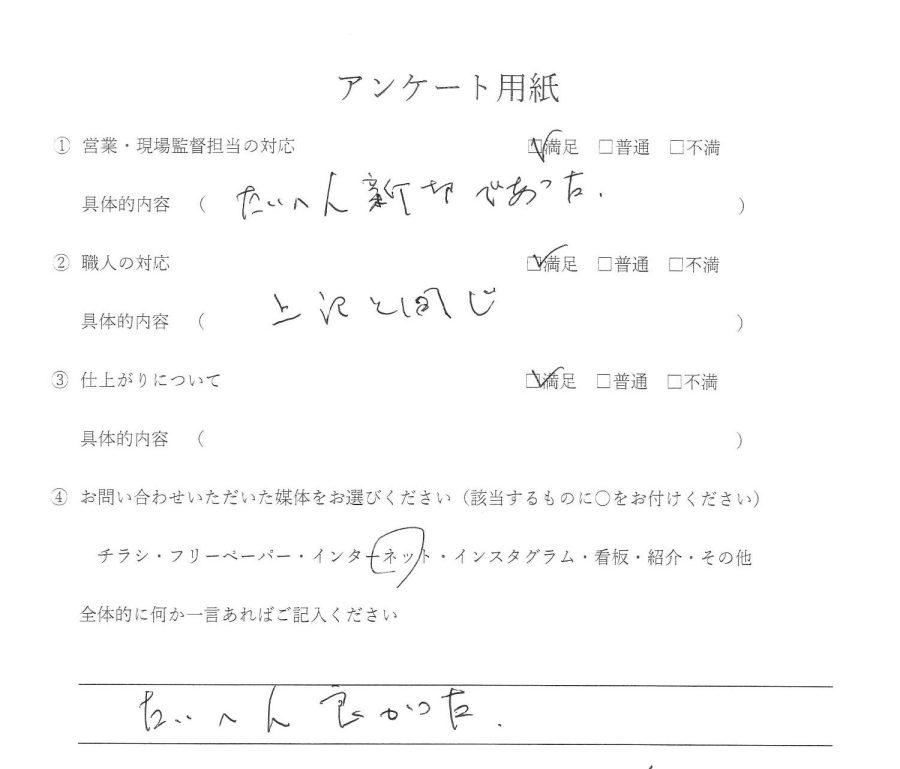 アンケート用紙
① 営業・現場監督担当の対応 ☑満足 □普通 □不満
具体的内容 （ たいへん親切であった. ）
② 職人の対応 ☑満足 □普通 □不満
具体的内容 （ 上記と同じ ）
③ 仕上がりについて ☑満足 □普通 □不満
具体的内容 （ ）
④ お問い合わせいただいた媒体をお選びください（該当するものに○をお付けください）
チラシ・フリーペーパー・インターネット・インスタグラム・看板・紹介・その他
全体的に何か一言あればご記入ください
たいへん良かった.